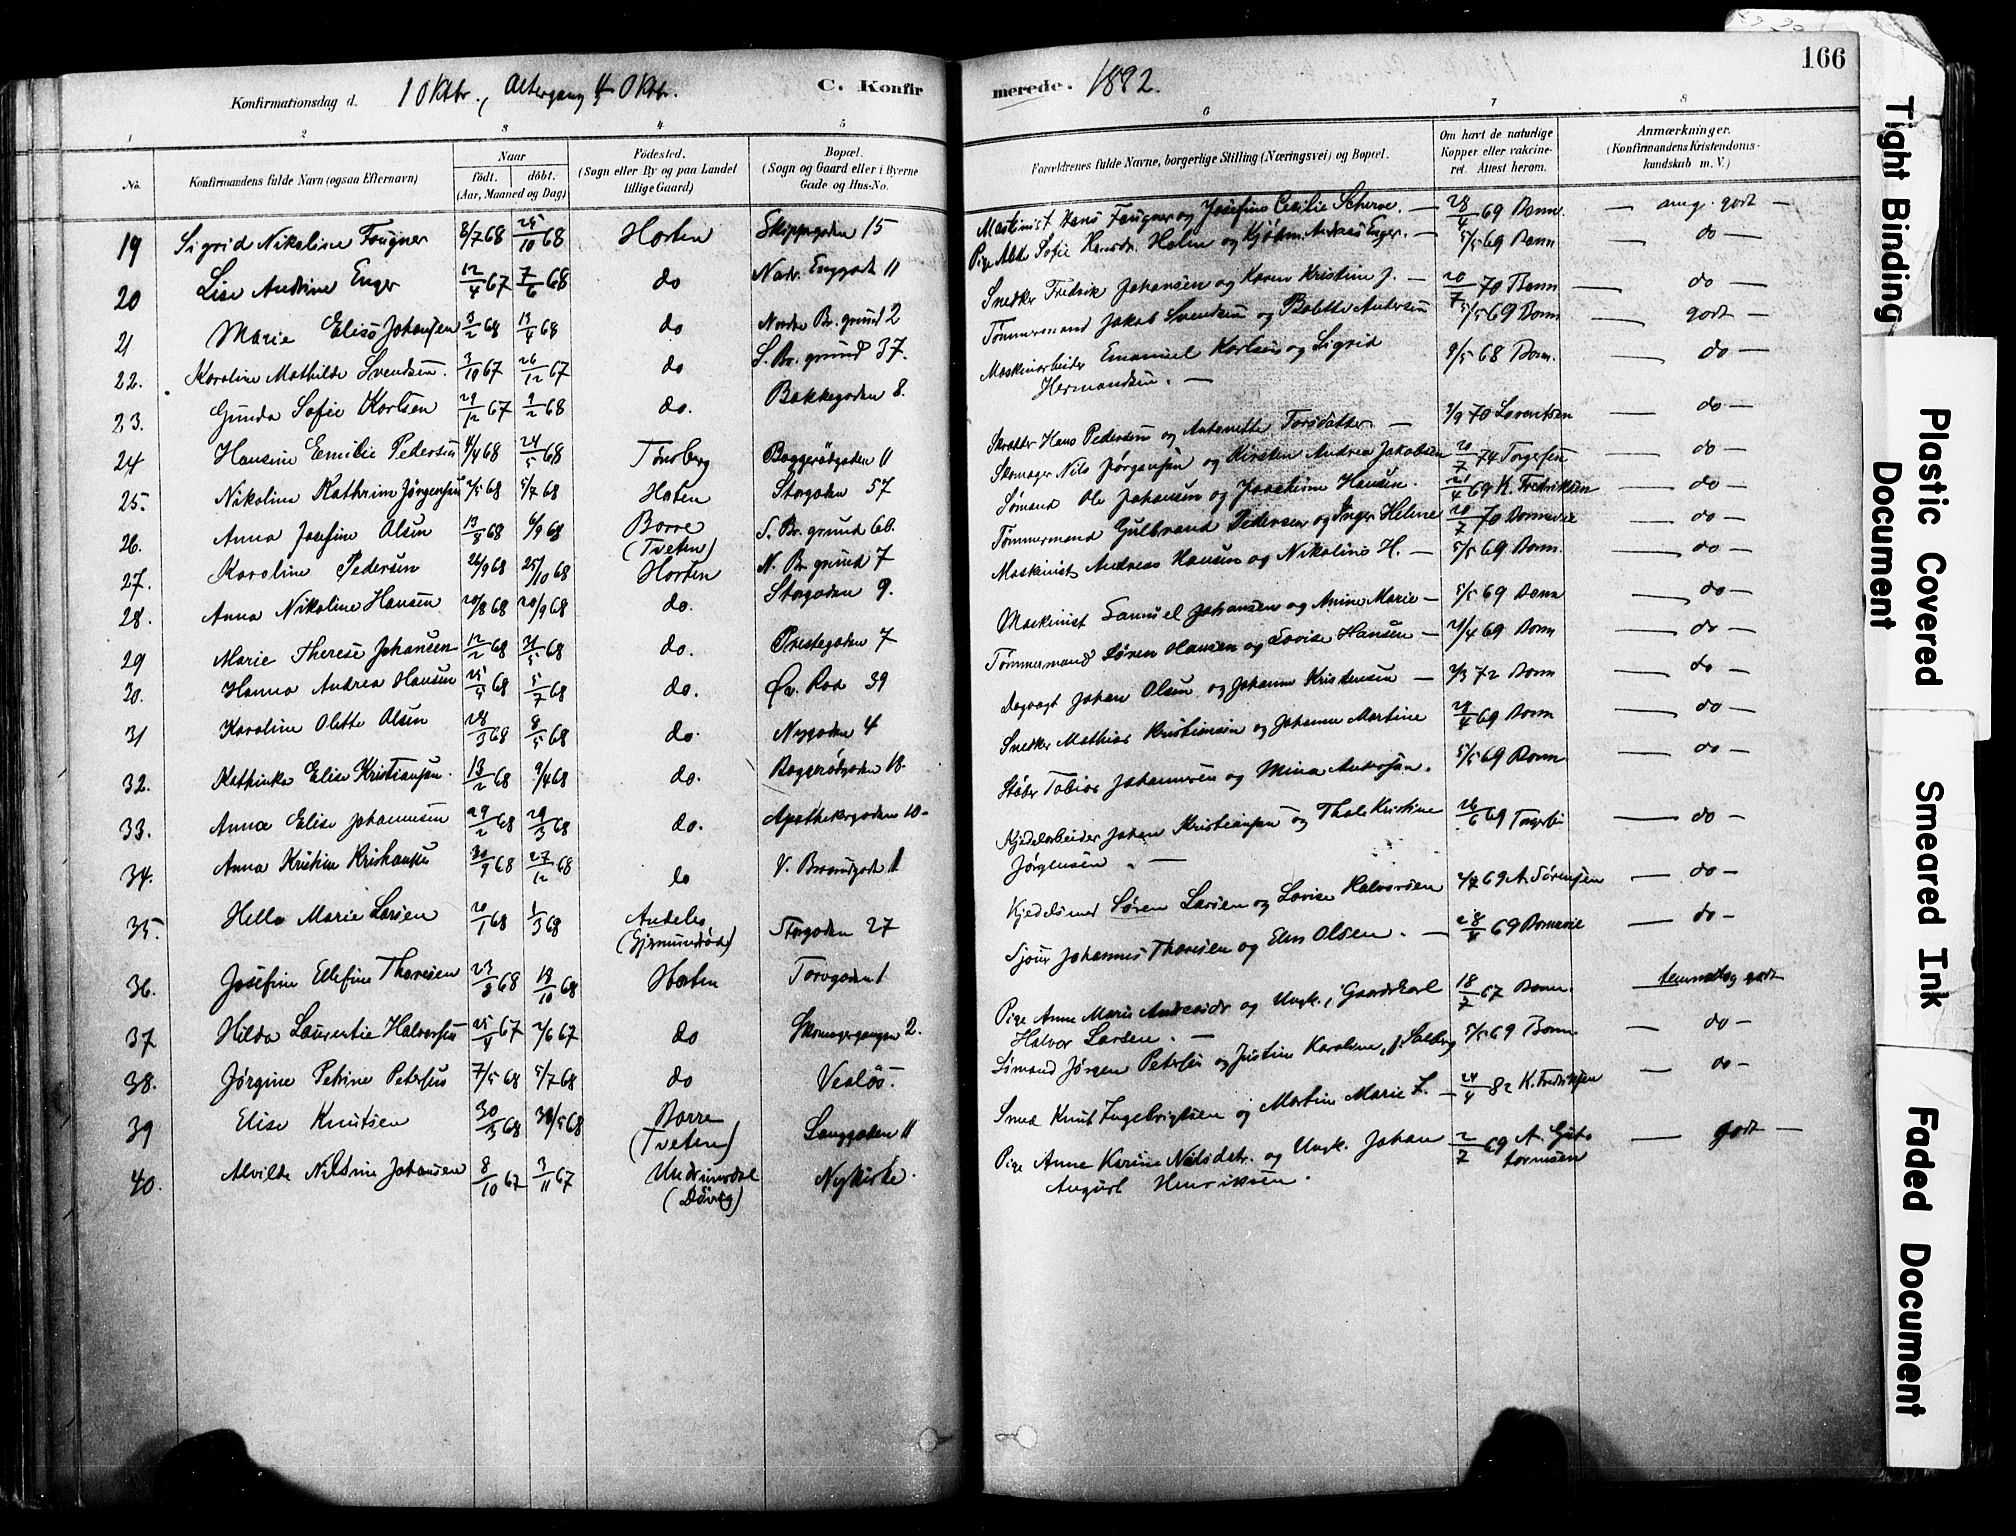 166
Konfirmationsdag d. 1 Oktbr., Altergang 4 Oktbr. C. Konfirmerede. 1882.
1 2 3 4 5 6 7 8
No. Konfirmandens fulde Navn (ogsaa Efternavn) Naar født. døbt. (Aar, Maaned og Dag) Fødested. (Sogn eller By og paa Landet tillige Gaard) Bopæl. (Sogn og Gaard eller i Byerne Gade og Hus-No. Forældrenes fulde Navne, borgerlige Stilling (Næringsvei) og Bopæl. Om havt de naturlige Kopper eller vaccineret. Attest herom. Anmærkninger. (Konfirmandens Kristendomskundskab m. V.)
19 Sigrid Nikoline Fougner 8/7 68 25/10 68 Horten Skippergaden 15 Maskinist Hans Fougner og Josefine Cecilie Scherve. — 28/4 69 Bonn. — meg. godt —
20 Lise Andrine Enger 12/4 67 7/6 68 do Nordr. Enggade 11 Pige Alet Sofie Hansdr. Holm og Kjøbm. Andreas Enger. — 5/5 69 Bonn — do —
21 Marie Elise Johansen 3/2 68 13/4 68 do Nordre Br. grund 2 Snedker Fredrik Johansen og Karen Kristine J. — 20/7 70 Bonn — do —
22. Karoline Mathilde Svendsen. 3/10 67 26/12 67 do S. Br. grund 37. Tømmermand Jakob Svendsen og Bolette Andersen 5/5 69 Bonn — godt —
23. Gunda Sofie Karlsen 29/12 67 9/2 68 do. Bakkegaden 8. Maskinarbeider Emanuel Karlsen og Sigrid Hermandsen. — 9/5 68 Bonn. — do —
24 Hansine Emilie Pedersen 4/4 68 24/5 68 Tønsberg Baggerødgaden 11 Hans Pedersen og Antonette Torsdatter — 3/9 70 Lorentsen — do —
25. Nikoline Kathrine Jørgensen 2/5 68 5/7 68 Horten Storgaden 57 Skomager Nils Jørgensen og Kirsten Andrea Jakobsen 20/7 74 Torgersen — do —
26. Anna Josefine Olsen 13/8 68 6/9 68 Borre (Tveten) S. Br. grund 60. Sømand Ole Johansen og Joachime Hansen. 21/4 69 K. Fredriksen — do —
27. Karoline Pedersen 26/9 68 25/10 68 Horten N. Br. grund 7 Tømmermand Gulbrand Pedersen og Inger Helene 20/7 70 Bonnevie — do —
28. Anna Nikoline Hansen 20/8 68 20/9 68 do. Storgaden 9. Maskinist Andreas Hansen og Nikoline H. — 5/5 69 Bonn. — do —
29 Marie Therese Johansen 12/2 68 31/5 68 do. Prestegaden 7 Maskinist Samuel Johansen og Anine Marie — 5/5 69 Bonn — do —
30. Hanna Andrea Hansen 25/5 68 5/7 68 do. Øv. Rad 39 Tømmermand Søren Hansen og Lovise Hansen — 29/4 69 Bonn — do —
31 Karoline Olette Olsen 28/3 68 8/5 68 do. Nygaden 4 Dagvagt Johan Olsen og Johanne Kristensen — 2/3 72 Bonn — do —
32. Kathinka Elise Kristiansen. 13/2 68 9/4 68 do. Baggerødgaden 18. Snedker Mathias Kristiansen og Johanne Martine 28/4 69 Bonn — do —
33. Anna Elise Johannesen 29/2 68 29/3 68 do. Apothekergaden 10. Støber Tobias Johannesen og Mina Andersen. 5/5 69 Bonn. — do —
34. Anna Kristine Kristiansen 30/9 68 27/12 68 do V. Brandgade 1 Kjedelarbeider Johan Kristiansen og Thale Kristine Jørgensen. — 26/6 69 — do —
35. Hella Marie Larsen 20/1 68 1/3 68 Andebo (Gjermundrød) Storgaden 27 Kjedelsmed Søren Larsen og Lovise Halvorsen 4/7 69 A. Sørensen — do —
36. Josefine Ellefine Thoresen 23/8 68 18/10 68 Horten Torvgaden 1 Sjouer Johannes Thoresen og Elen Olsen. — 28/4 69 Bonnevie — do —
37 Hilda Laurentie Halvorsen 25/4 67 2/6 67 do Skomagergangen 2. Pige Anne Marie Andreasdr og Ungk., Gaardskarl Halvor Larsen. — 18/7 67 Bonn. temmelig godt
38. Jørgine Petrine Petersen 7/5 68 5/7 68 do Vealøs. Sømand Jørgen Petersen og Justine Karoline, f. Solberg 5/5 69 Bonn — do —
39 Elise Knutsen 30/3 68 31/5 68 Borre (Tveten) Langgaden 11 Smed Knut Ingebrigtsen og Martine Marie L. — 24/4 82 K. Fredriksen — do —
40. Alvilde Nilsine Johansen 8/10 67 3/11 67 Undrumsdal (Døvig) Nykirke. Pige Anne Karine Nilsdtr. og Ungk. Johan August Henriksen. 2/7 69 A. Guttormsen — godt —
Tight Binding
Plastic Covered Document
Smeared Ink
Faded Document